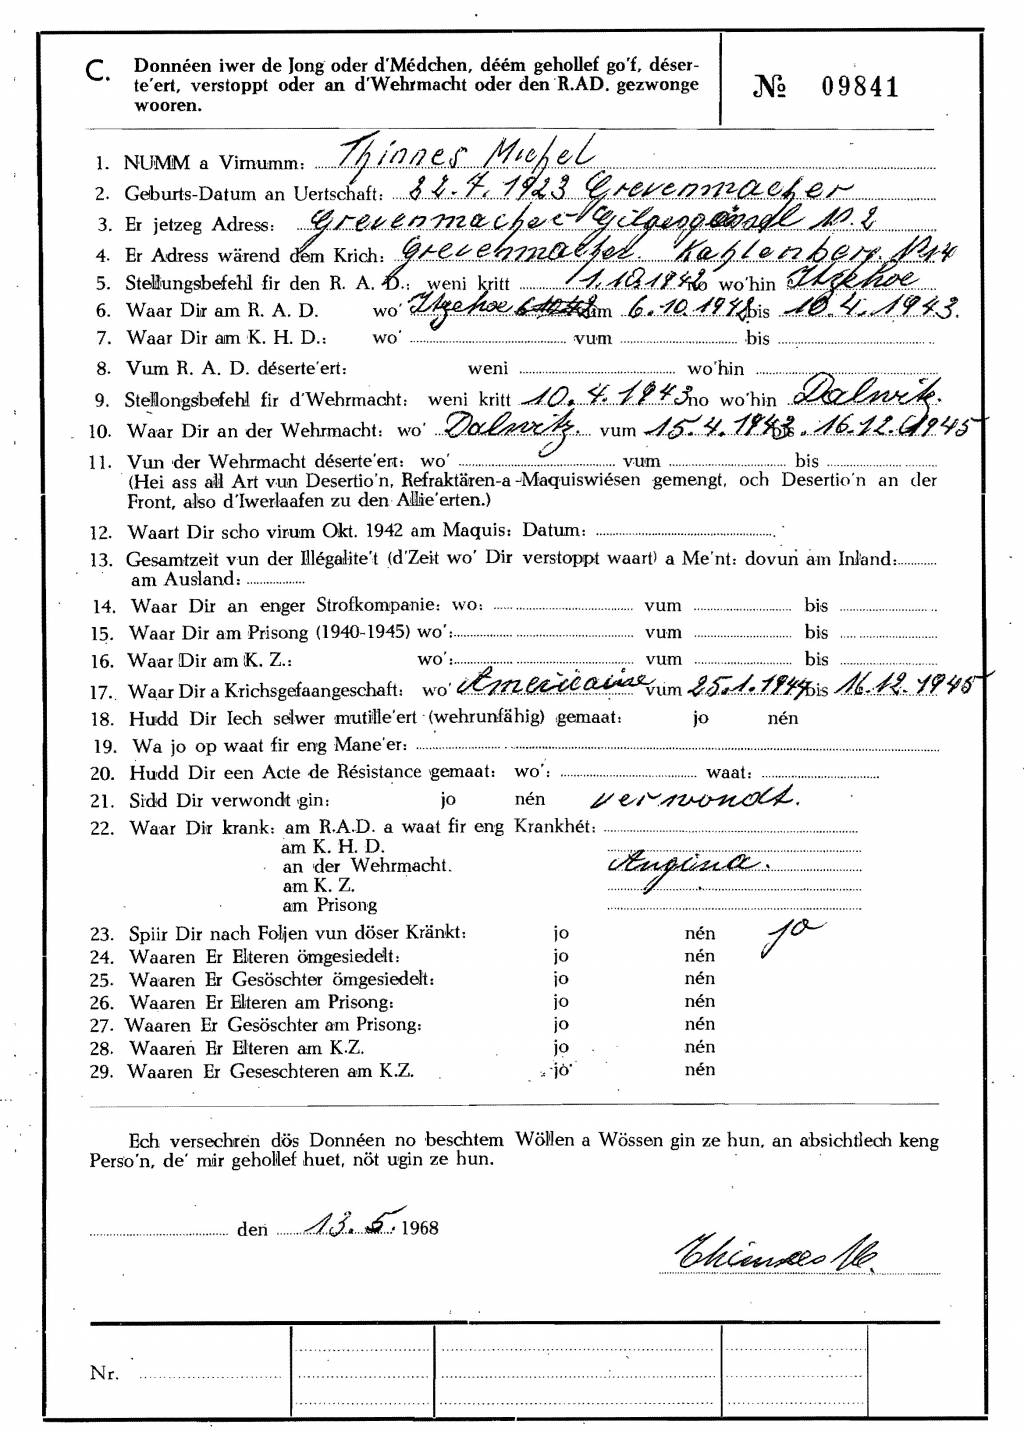 C. Donnéen iwer de Jong oder d'Médchen, déém gehollef go'f, déser-
te'ert, verstoppt oder an d'Wehrmacht oder den R.AD. gezwonge
wooren.
№ 09841
1. NUMM a Virnumm: Thinnes Michel
2. Geburts-Datum an Uertschaft: 22.7.1923 Grevenmacher
3. Er jetzeg Adress: Grevenmacher N. 2
4. Er Adress wärend dem Krich: Grevenmacher Kahlenberg. Nr 4
5. Stellungsbefehl fir den R. A. D.: weni kritt 1.10.1942 no wo'hin Itzehoe
6. Waar Dir am R. A. D. wo' Itzehoe vum 6.10.1942 bis 10.4.1943.
7. Waar Dir am K. H. D.: wo' vum bis
8. Vum R. A. D. déserte'ert: weni wo'hin
9. Stellongsbefehl fir d'Wehrmacht: weni kritt 10.4.1943 no wo'hin Dalwitz.
10. Waar Dir an der Wehrmacht: wo' Dalwitz. vum 15.4.1943 bis 16.12.1945
11. Vun der Wehrmacht déserte'ert: wo' vum bis
(Hei ass all Art vun Desertio'n, Refraktären-a-Maquiswiésen gemengt, och Desertio'n an der
Front, also d'Iwerlaafen zu den Allie'erten.)
12. Waart Dir scho virum Okt. 1942 am Maquis: Datum:
13. Gesamtzeit vun der Illégalite't (d'Zeit wo' Dir verstoppt waart) a Me'nt: dovun am Inland:
am Ausland:
14. Waar Dir an enger Strofkompanie: wo: vum bis
15. Waar Dir am Prisong (1940-1945) wo': vum bis
16. Waar Dir am K. Z.: wo': vum bis
17. Waar Dir a Krichsgefaangeschaft: wo' Americaine vum 25.1.1944 bis 16.12.1945
18. Hudd Dir Iech selwer mutille'ert (wehrunfähig) gemaat: jo nén
19. Wa jo op waat fir eng Mane'er:
20. Hudd Dir een Acte de Résistance gemaat: wo': waat:
21. Sidd Dir verwondt gin: jo nén verwondt.
22. Waar Dir krank: am R.A.D. a waat fir eng Krankhét:
am K. H. D.
an der Wehrmacht. Angina.
am K. Z.
am Prisong
23. Spiir Dir nach Foljen vun döser Kränkt: jo nén jo
24. Waaren Er Elteren ömgesiedelt: jo nén
25. Waaren Er Gesöschter ömgesiedelt: jo nén
26. Waaren Er Elteren am Prisong: jo nén
27. Waaren Er Gesöschter am Prisong: jo nén
28. Waaren Er Elteren am K.Z. jo nén
29. Waaren Er Geseschteren am K.Z. jo nén
Ech versechren dös Donnéen no beschtem Wöllen a Wössen gin ze hun, an absichtlech keng
Perso'n, de' mir gehollef huet, nöt ugin ze hun.
den 13.5. 1968
Thinnes M.
Nr.